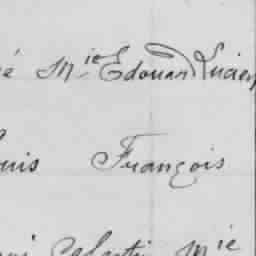 é Mie Edouard Lucien
uis François
Celestin Mie